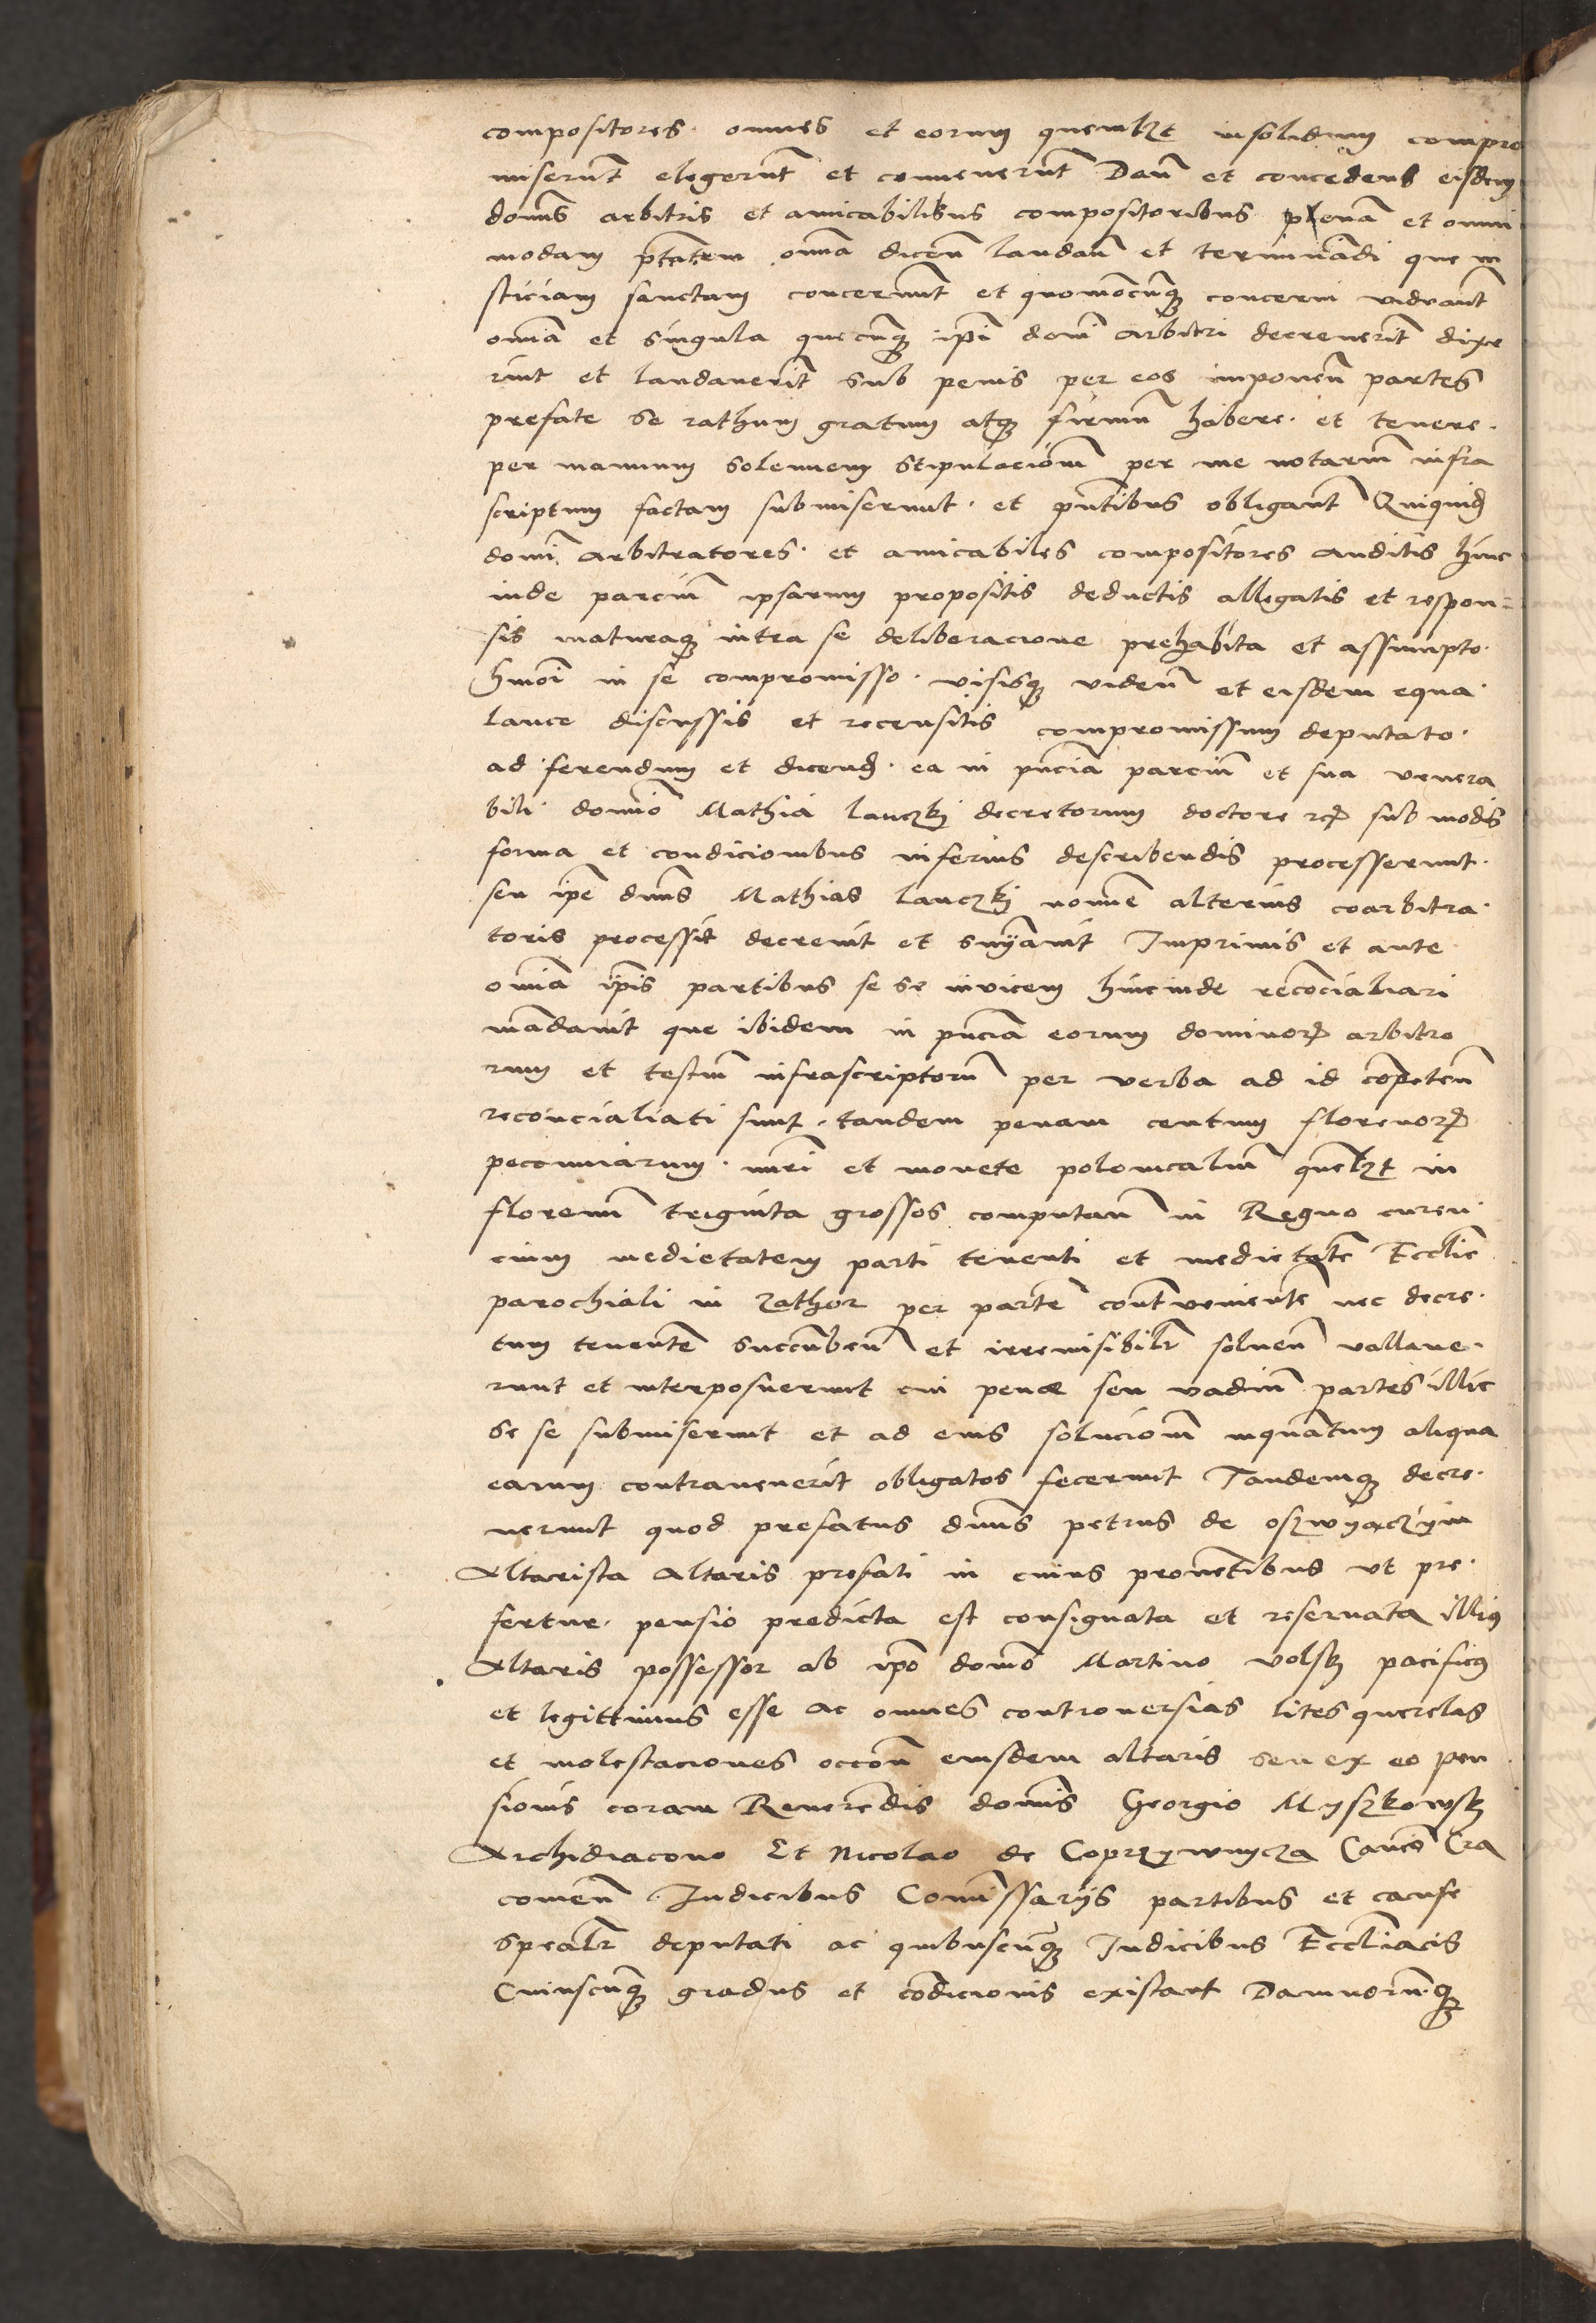 compositores omnes et eorum quemlꝫt insolidum compro
miserūt elegerūt et convenerūt Dan̄ et concedens eisdem
domīs arbitris et amicabilibus compositoribus plenā et omni
modam ptātem omīa dicen̄ laudan̄ et terminādi que iu
sticiam sanctam concernunt et quomōcūqꝫ concerni videant̄
omīa et singula quecūqꝫ ipī domī arbitri decreverīt dixe
rint et laudaverīt sub penis per eos imponen̄ partes
prefate se rathum gratum atqꝫ firmū habere et tenere
per manuum solemnem stipulaciōem per me notariū infra
scriptum factam submiserunt et pn̄tibus obligant̄ Quiquid
domī arbitratores et amicabiles compositores auditis hinc
inde parciū ipsarum propositis deductis allegatis et respon=
sis maturaqꝫ intra se deliberacione prehabita et assumpto
hmōi in se compromisso visisqꝫ viden̄ et eisdem equa
lance discussis et recensitis compromissum deputato
ad ferendum et dicend ea in pn̄cia parciū et sua venera
bili domīo Mathia lanczkj decretorum doctore rcꝫ sub modis
forma et condicionibus inferius describendis processerunt
seu ipē dn̄s Mathias lanczkj nomīe alterius coarbitra
toris processit decrevit et snīavit Imprimis et ante
omīa ipīs partibus se se invicem hincinde recōcialiari
mādavit que ibidem in pn̄cia eorum dominorꝫ arbitro
rum et testiū infrascriptorū per verba ad id cōpeten̄
reconcialiati sunt tandem penam centum florenorꝫ
pecuniarum nūri et monete polonicaliū quēlꝫt in
florenū triginta grossos computan̄ in Regno curen
cium medietatem parti tenenti et medietatē Eccliē
parochiali in zathor per partē cont̄venientē nec decre
tum tenentē succūben̄ et irremisibilr̄ solven̄ vallave
runt et interposuerunt cui pene seu vadiū partes illic
se se submiserunt et ad eius soluciōem inquātum aliqua
earum contravenerit obligatos fecerunt Tandemqꝫ decre
verunt quod prefatus dn̄s petrus de oszwyączym
Altarista Altaris prefati in cuius provētibus ut pre
fertur pensio predicta est consignata et reservata illius
Altaris possessor ab ipō domō Martino volsky pacificus
et legittimus esse Ac omnes controversias lites querelas
et molestaciones occōne eiusdem altaris seu ex eo pen
sionis coram Reverēdis domīs Georgio Myszkowsky
Archidiacono Et Nicolao de Coprzywnycza Canōcis Cra
covien̄ Iudicibus Comīssarijs partibus et cause
spealr̄ deputati ac quibuscūqꝫ Iudicibus Eccliācis
Cuiuscūqꝫ gradus et cōdicionis existant Damnorūqꝫ